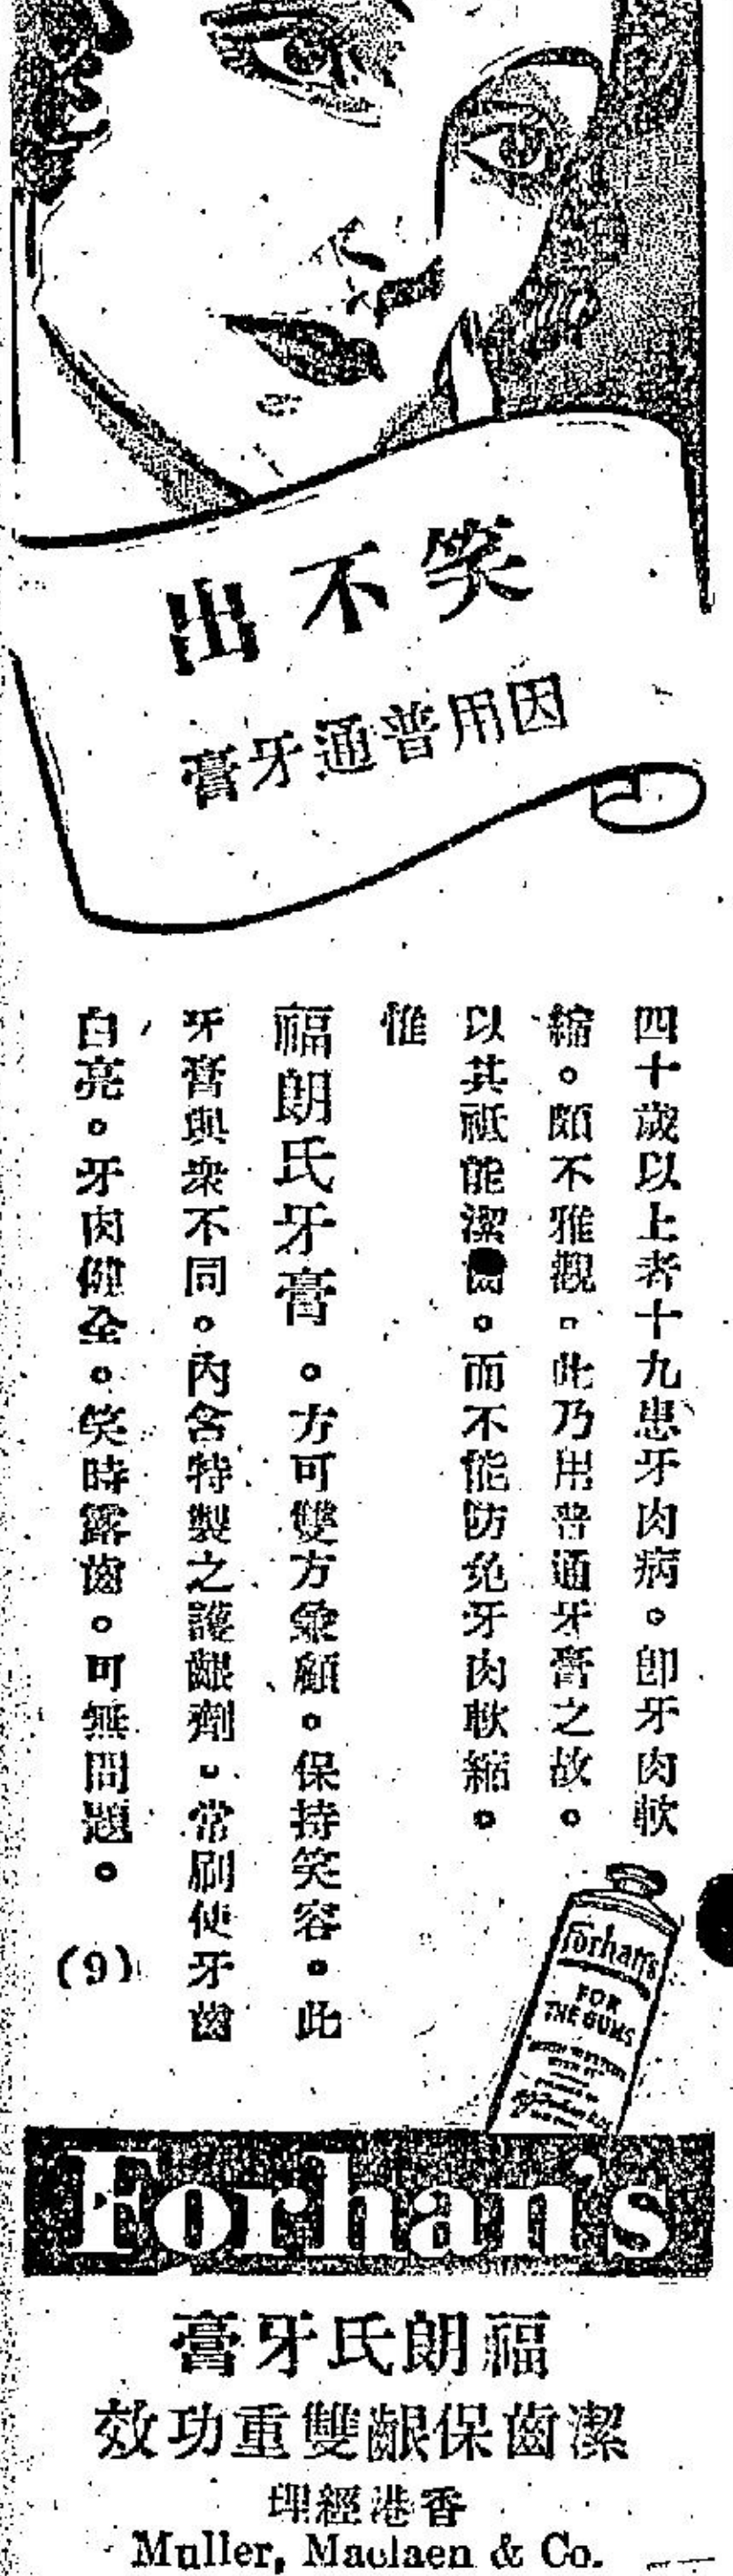 笑不出
因用普通牙膏
四十歲以上者十九患牙肉病。卽牙肉軟
縮。頗不雅觀。此乃用普通牙膏之故。
以其祗能潔齒。而不能防免牙肉軟縮。
惟
福朗氏牙膏。方可雙方兼顧。保持笑容。此
牙膏與衆不同。內含特製之護齦劑。常刷使牙齒
白亮。牙肉健全。笑時露齒。可無問題。(9)
Forhan's
FOR
THE GUMS
Forhan's
福朗氏牙膏
潔齒保齦雙重功效
香港經理
Muller, Maclaen & Co.